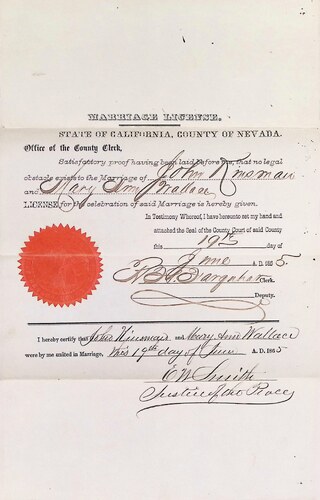 MARRIAGE LICENSE.
STATE OF CALIFORNIA, COUNTY OF NEVADA.
Office of the County Clerk,
Satisfactory proof having been laid before me, that no legal
obstacle exists to the Marriage of John Kinsman
and Mary Ann Wallace
LICENSE for the celebration of said Marriage is hereby given.
In Testimony Whereof, I have hereunto set my hand and
attached the Seal of the County Court of said County
this 19th day of
June A.D. 1865.
Clerk.
Deputy.
I hereby certify that John Kinsman and Mary Ann Wallace
were by me united in Marriage, this 19th day of June A. D. 1865
E W Smith
Justice of the Peace